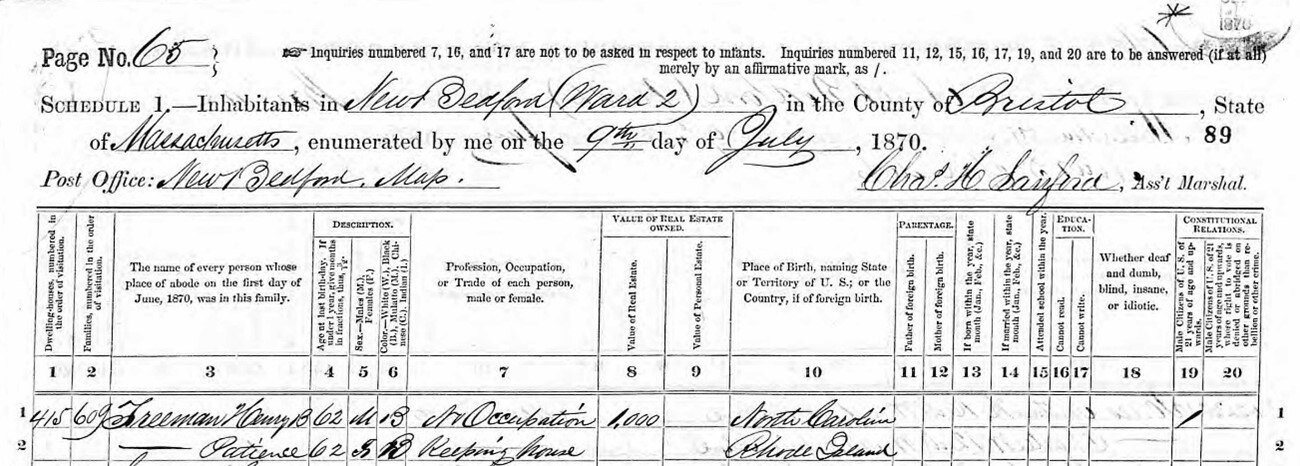 1870
Page No. 65
☞ Inquiries numbered 7, 16, and 17 are not to be asked in respect to infants. Inquiries numbered 11, 12, 15, 16, 17, 19, and 20 are to be answered (if at all)
merely by an affirmative mark, as /.
SCHEDULE 1.—Inhabitants in New Bedford (Ward 2), in the County of Bristol, State
of Massachusetts, enumerated by me on the 9th day of July, 1870.
89
Post Office: New Bedford, Mass.
Chas. H Sanford, Ass't Marshal.
Dwelling-houses, numbered in the order of visitation.
Families, numbered in the order of visitation.
The name of every person whose place of abode on the first day of June, 1870, was in this family.
DESCRIPTION.
Age at last birth-day. If under 1 year, give months in fractions, thus, 3/12.
Sex.—Males (M.), Females (F.)
Color.—White (W.), Black (B.), Mulatto (M.), Chinese (C.), Indian (I.)
Profession, Occupation, or Trade of each person, male or female.
VALUE OF REAL ESTATE OWNED.
Value of Real Estate.
Value of Personal Estate.
Place of Birth, naming State or Territory of U. S.; or the Country, if of foreign birth.
PARENTAGE.
Father of foreign birth.
Mother of foreign birth.
If born within the year, state month (Jan., Feb., &c.)
If married within the year, state month (Jan., Feb., &c.)
Attended school within the year.
EDUCATION.
Cannot read.
Cannot write.
Whether deaf and dumb, blind, insane, or idiotic.
CONSTITUTIONAL RELATIONS.
Male Citizens of U. S. of 21 years of age and upwards.
Male Citizens of U. S. of 21 years of age and upwards, where right to vote is denied or abridged on other grounds than rebellion or other crime.
1 2 3 4 5 6 7 8 9 10 11 12 13 14 15 16 17 18 19 20
1 415 609 Freeman Henry B 62 M B No Occupation 1,000 North Carolina / 1
2 — Patience 62 F B Keeping House Rhode Island 2